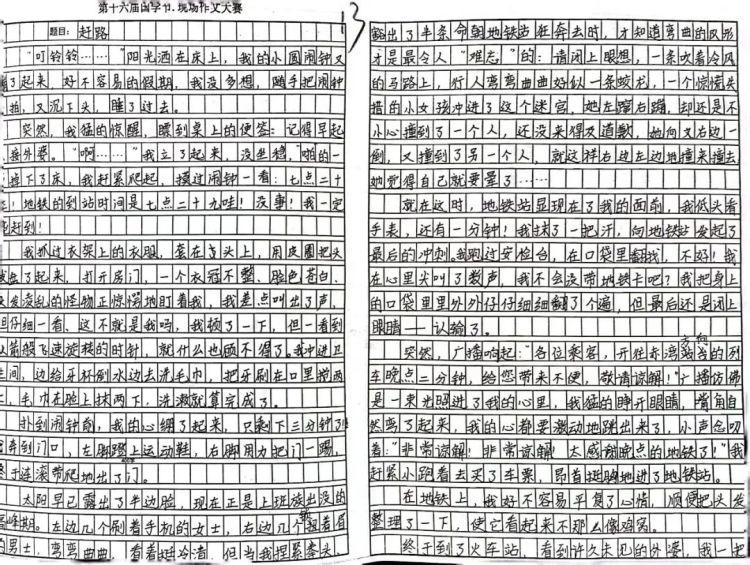 第十六届国学节·现场作文大赛
题目：赶路
"叮铃铃……"阳光洒在床上，我的小圆闹钟又
了起来，好不容易的假期，我没多想，随手把闹钟
拍，又沉下头，睡了过去。
突然，我猛的惊醒，瞟到桌上的便签：记得早起
接外婆。"啊……"我立了起来，没坐稳，"啪的一
掉下了床，我赶紧爬起，摸过闹钟一看：七点二十
！地铁的到站时间是七点二十九哇！没事！我一定
赶到！
我抓过衣架上的衣服，套在头上，用皮圈把头
盘了起来，打开房门，一个衣冠不整、脸色苍白、
发凌乱的怪物正惊愕地盯着我，我差点叫出了声，
但仔细一看、这不就是我吗，我顿了一下，但一看到
箭般飞速旋转的时针，就什么也顾不得了。我冲进卫
生间，边给牙杯刷水边去洗毛巾，把牙刷在口里捣两
，毛巾在脸上抹两下，洗漱就算完成了。
扑到闹钟前，我的心绷了起来，只剩下三分钟了！
奔到门口，左脚蹬上运动鞋，右脚用力把门一踢，
终于连滚带爬地出了门。
太阳早已露出了半边脸，现在正是上班族出没的
高峰期。左边几个刷着手机的女士，右边几个皱着眉
的男士，弯弯曲曲，看着挺冷清，但当我捏紧拳头、
豁出了半条命朝地铁站狂奔去时，才知道弯曲的队形
才是最令人"难忘"的：请闭上眼想，一条吹着冷风
的马路上，行人弯弯曲曲好似一条蛟龙，一个惊慌失
措的小女孩冲进了这个迷宫，她左蹿右蹿，却还是不
小心撞到了一个人，还没来得及道歉，她向又右边一
倒，又撞到了另一个人，就这样右边左边地撞来撞去
她觉得自己就要晕了……
就在这时，地铁站显现在了我的面前，我低头看
手表，还有一分钟！我抹了一把汗，向地铁站发起了
最后的冲刺。我跑过安检台，在口袋里翻找，不好！我
在心里尖叫了数声，我不会没带地铁卡吧？我把身上
的口袋里里外外仔仔细细翻了个遍，但最后还是闭上
眼睛——认输了。
突然，广播响起："各位乘客，开往赤湾站方向的列
车晚点二分钟，给您带来不便，敬请谅解！"广播仿佛
是一束光照进了我的心里，我猛的睁开眼睛，嘴角自
然弯了起来，我的心都要激动地跳出来了，小声念叨
着："非常谅解！非常谅解！太感谢晚点的地铁了！"我
赶紧小跑着去买了车票，昂首挺胸地进了地铁站。
在地铁上，我好不容易平复了心情，顺便把头发
整理了一下，使它看起来不那么像鸡窝。
终于到了火车站，看到许久未见的外婆，我一把